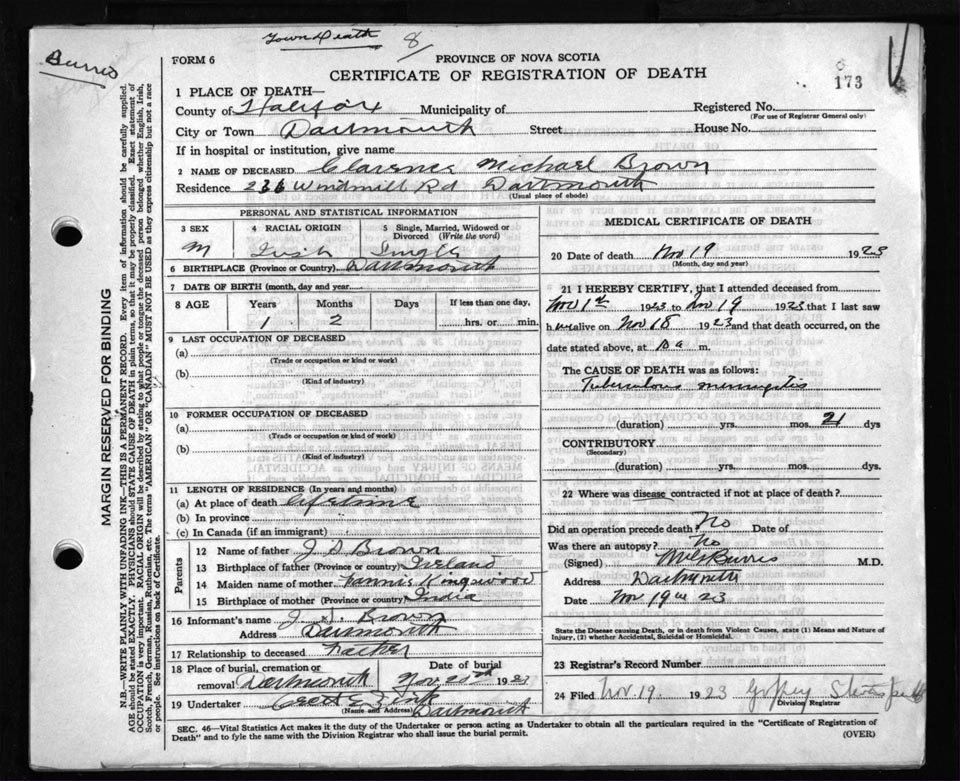 Town Death 8
Burris
FORM 6
PROVINCE OF NOVA SCOTIA
CERTIFICATE OF REGISTRATION OF DEATH
173
1 PLACE OF DEATH—
County of Halifax Municipality of Registered No.
(For use of Registrar General only)
City or Town Dartmouth Street House No.
If in hospital or institution, give name
2 NAME OF DECEASED Clarence Michael Brown
Residence 236 Windmill Rd Dartmouth
(Usual place of abode)
PERSONAL AND STATISTICAL INFORMATION
3 SEX 4 RACIAL ORIGIN 5 Single, Married, Widowed or Divorced (Write the word)
M Irish Single
6 BIRTHPLACE (Province or Country) Dartmouth
7 DATE OF BIRTH (month, day and year)
8 AGE Years Months Days If less than one day,
1 2 hrs. or min.
9 LAST OCCUPATION OF DECEASED
(a)
(Trade or occupation or kind or work)
(b)
(Kind of industry)
10 FORMER OCCUPATION OF DECEASED
(a)
(Trade or occupation or kind of work)
(b)
(Kind of industry)
11 LENGTH OF RESIDENCE (In years and months)
(a) At place of death lifetime
(b) In province
(c) In Canada (if an immigrant)
Parents
12 Name of father J S Brown
13 Birthplace of father (Province or country) Ireland
14 Maiden name of mother Fannie Kingswood
15 Birthplace of mother (Province or country) India
16 Informant's name J. S. Brown
Address Dartmouth
17 Relationship to deceased Father
18 Place of burial, cremation or removal Dartmouth
Date of burial Nov 20th 1923
19 Undertaker
(Name and Address) Dartmouth
MEDICAL CERTIFICATE OF DEATH
20 Date of death Nov 19 1923
(Month, day and year)
21 I HEREBY CERTIFY, that I attended deceased from
Nov 1st 1923 to Nov 19 1923 that I last saw
h alive on Nov 18 1923 and that death occurred, on the
date stated above, at 10 a m.
The CAUSE OF DEATH was as follows:
Tuberculous meningitis
(duration) yrs. mos. 21 dys
CONTRIBUTORY
(Secondary)
(duration) yrs. mos. dys.
22 Where was disease contracted if not at place of death?
Did an operation precede death? No Date of
Was there an autopsy? No
(Signed) Burris M.D.
Address Dartmouth
Date Nov 19th 23
State the Disease causing Death, or in death from Violent Causes, state (1) Means and Nature of
Injury, (2) whether Accidental, Suicidal or Homicidal.
23 Registrar's Record Number
24 Filed Nov 19 1923
Division Registrar
SEC. 46—Vital Statistics Act makes it the duty of the Undertaker or person acting as Undertaker to obtain all the particulars required in the "Certificate of Registration of
Death" and to fyle the same with the Division Registrar who shall issue the burial permit.
(OVER)
MARGIN RESERVED FOR BINDING
N.B.—WRITE PLAINLY WITH UNFADING INK—THIS IS A PERMANENT RECORD. Every item of information should be carefully supplied.
AGE should be stated EXACTLY. PHYSICIANS should STATE CAUSE OF DEATH in plain terms, so that it may be properly classified. Exact statement of
OCCUPATION is very important. RACIAL ORIGIN will be described by stating to what people or tongue the deceased person belonged whether English, Irish,
Scotch, French, German, Russian, Ruthenian, etc. The terms "AMERICAN" OR "CANADIAN" MUST NOT BE USED as they express citizenship but not a race
or people. See instructions on back of Certificate.